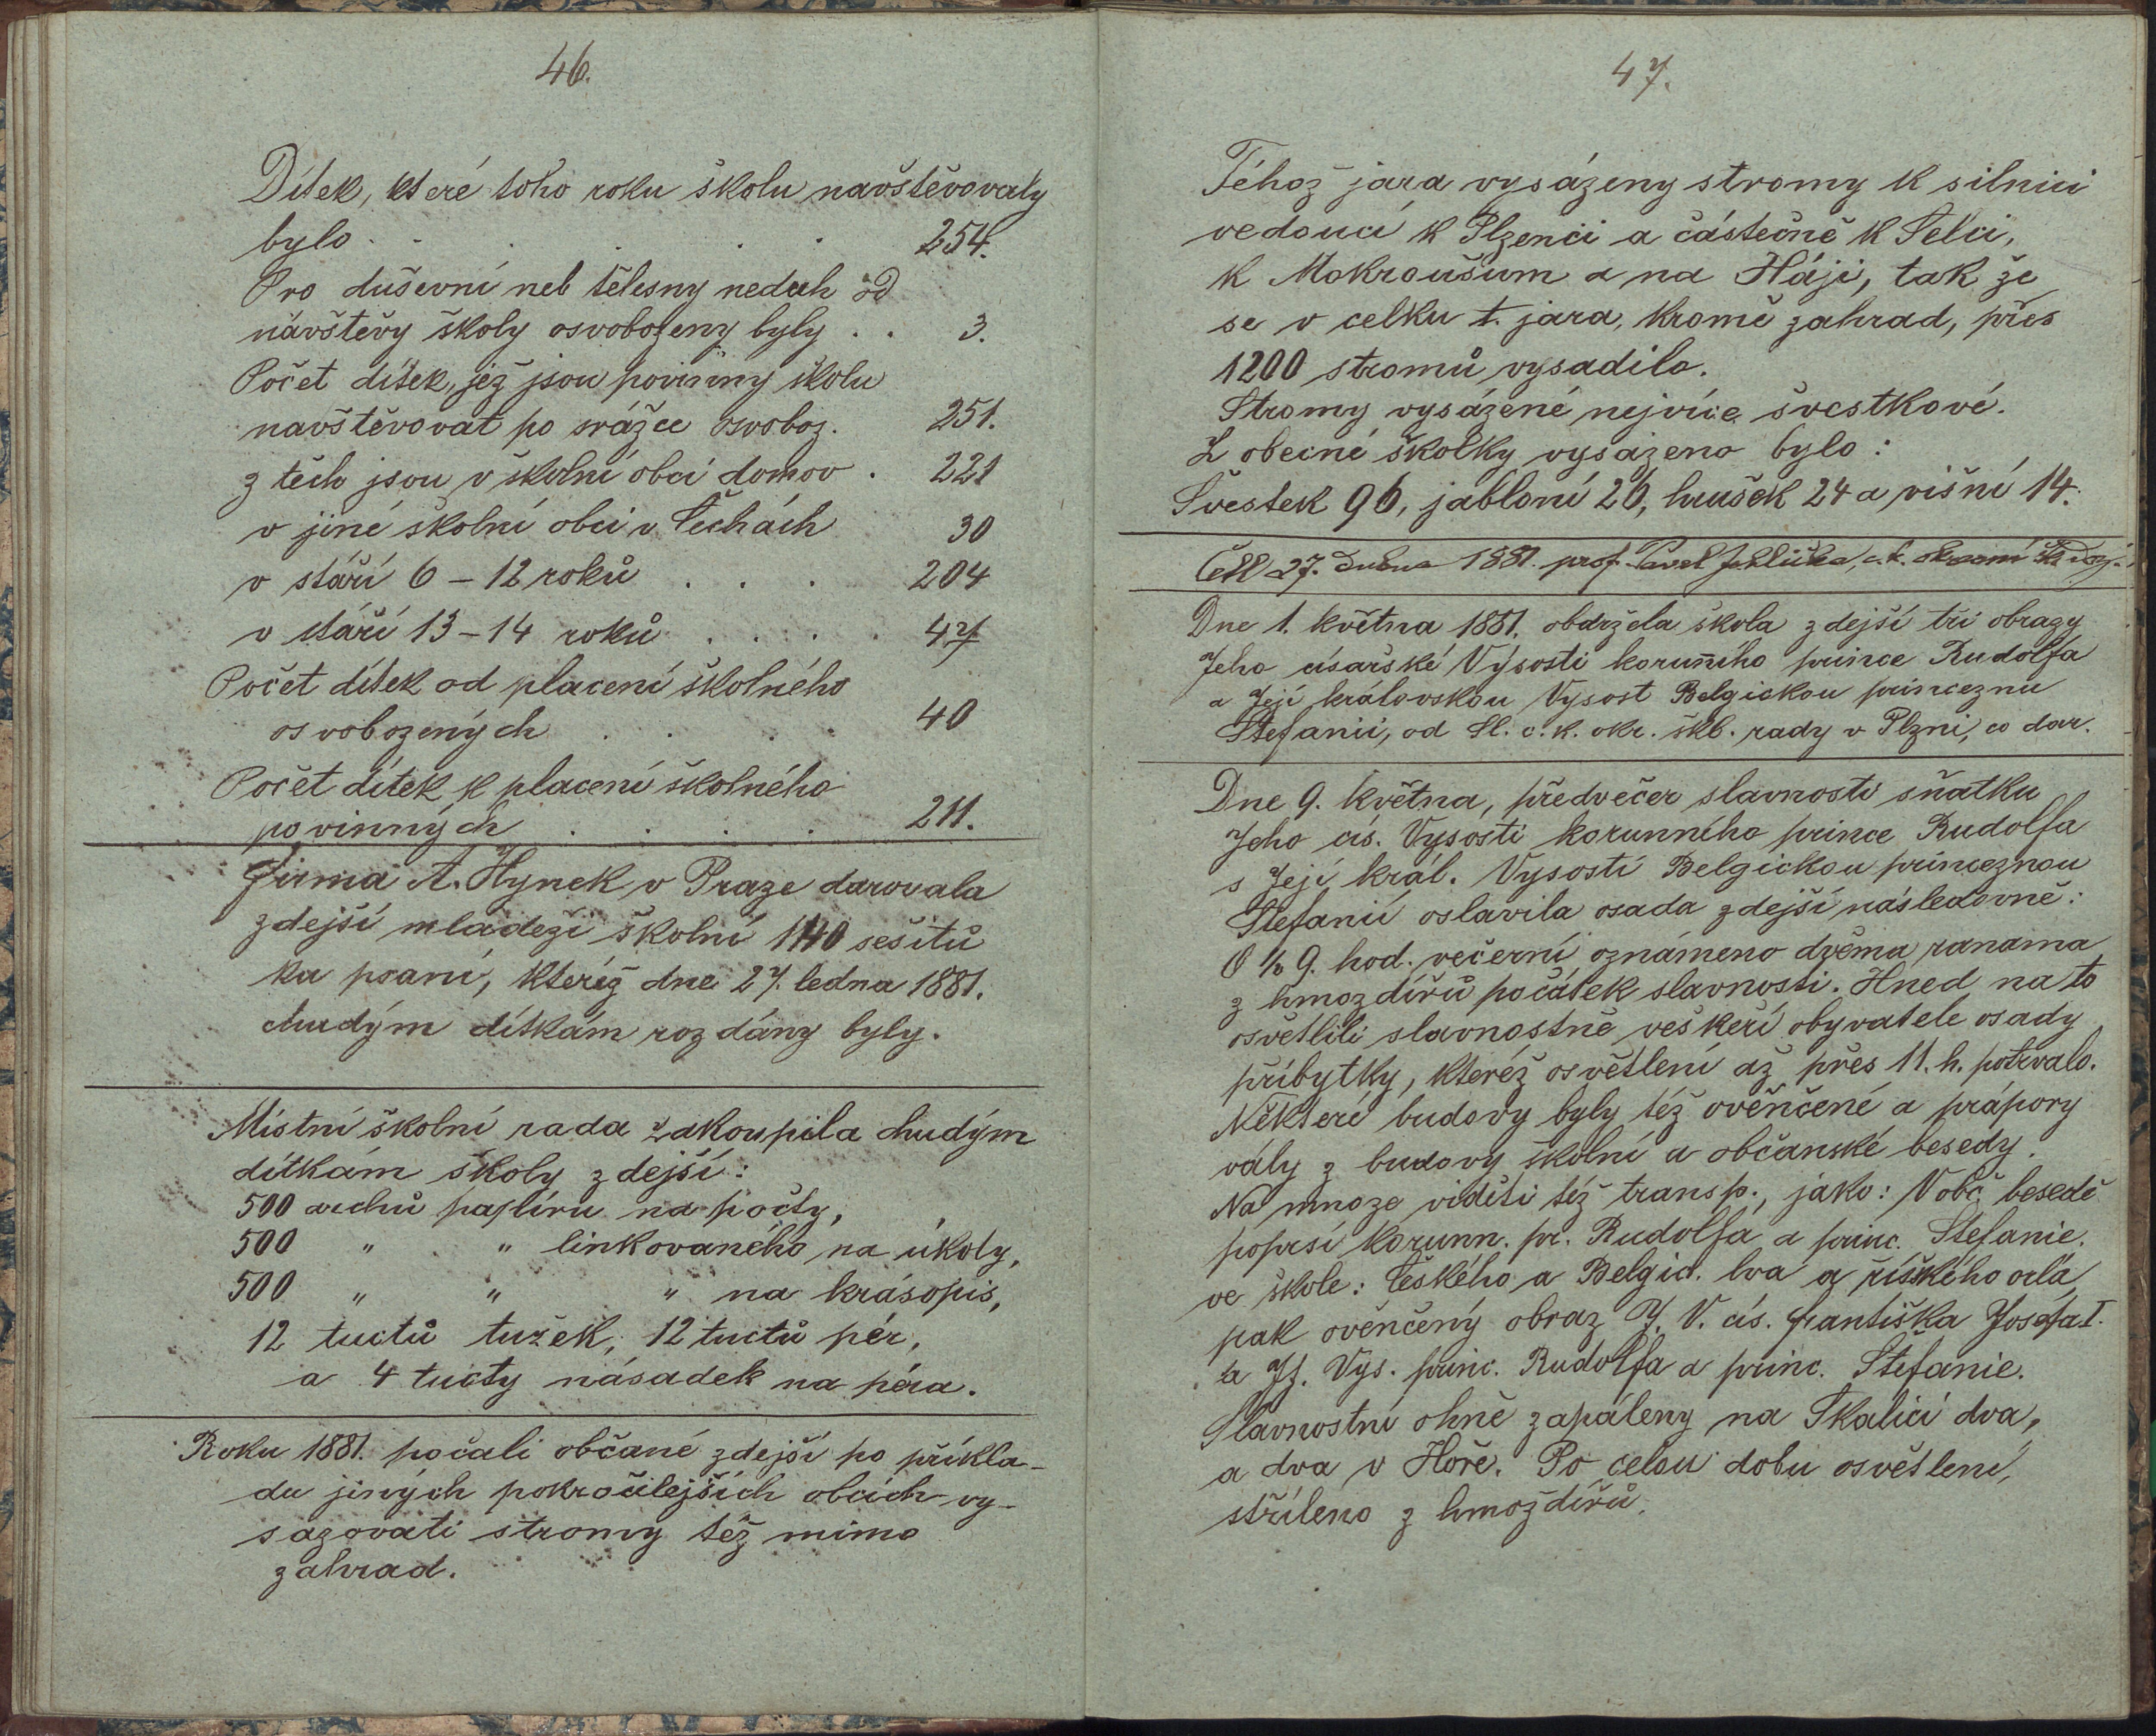 46.
Dítek, které toho roku školu navštěvovaly
bylo . . . . . . 254.
Pro duševní neb tělesny neduh od
návštěvy školy osvobozeny byly . . 3.
Počet dítek, jež jsou povinny školu
navštěvovat po srážce osvoboz. 251.
z těch jsou v školní obci domov . 221
v jiné školní obci v Čechách 30
v stáří 6 – 12 roků . . . 204
v stáří 13 – 14 roků . . . . 47
Počet dítek od placení školného
osvobozených . . . . 40
Počet dítek k placení školného
povinných . . . . 211.
Firma A. Hynek v Praze darovala
zdejší mládeži školní 1140 sešitů
ku psaní, kteréž dne 27. ledna 1881.
chudým dítkám rozdány byly.
Místní školní rada zakoupila chudým
dítkám školy zdejší:
500 archů papíru na počty,
500 " " linkovaného na úkoly,
500 " " " na krásopis,
12 tuctů tužek, 12 tuctů pér,
a 4 tucty násadek na péra.
Roku 1881. počali občané zdejší po příkla-
du jiných pokročilejších obcích vy-
sazovati stromy též mimo
zahrad.
47.
Téhož jara vysázeny stromy k silnici
vedoucí k Plzenci a částečně k Selci,
k Mokroušům a na Háji, tak že
se v celku t. jara, kromě zahrad, přes
1200 stromů vysadilo.
Stromy vysázené nejvíce švestkové.
Z obecné školky vysázeno bylo:
Švestek 96, jabloní 26, hrušek 24 a višní 14.
Četl 27. dubna 1881. prof. Pavel Jehlička, c. k. okresní šk. dozj.
Dne 1. května 1881. obdržela škola zdejší tři obrazy
Jeho císařské Výsosti korun̄ího prince Rudolfa
a Její královskou Vysost Belgickou princeznu
Štefanii, od Sl. c. k. okr. škl. rady v Plzni, co dar.
Dne 9. května, předvečer slavnosti sňatku
Jeho cís. Vysosti korunního prince Rudolfa
s Její král. Vysostí Belgickou princeznou
Štefanií oslavila osada zdejší následovně:
O ½ 9. hod. večerní oznámeno dvěma ranama
z hmozdířů počátek slavnosti. Hned na to
osvětlili slavnostně veškeří obyvatele osady
příbytky, kteréž osvětlení až přes 11. h. potrvalo.
Některé budovy byly též ověnčené a prápory
vály z budovy školní a občanské besedy.
Na mnoze viděti též transp., jako: V obč. besedě
poprsí korunn. pr. Rudolfa a princ. Štefanie.
ve škole: Českého a Belgic. lva a říšského orla,
pak ověnčený obraz J. V. cís. Františka Josefa I.
a Jj. Vys. princ. Rudolfa a princ. Štefanie.
Slavnostní ohně zapáleny na Skalici dva,
a dva v Hoře. Po celou dobu osvětlení,
stříleno z hmoždířů.